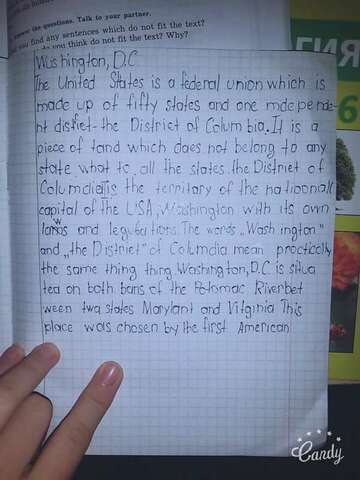 answer the questions. Talk to your partner.
you find any sentences which do not fit the text?
do you think do not fit the text? Why?
ГИЯ
6
Wushington, D.C
The United States is a federal union which is
made up of fifty states and one independe-
nt distict-the District of Columbia. It is a
piece of land which daes not belong to any
state what to all the states. the District of
Columdia is the territory of the natioonal
capital of the USA, Washington with its own
laws and legulations. The words „Wash ington"
and „the District" of Columdia mean practically
the same thing thing Washington, D.C. is situa
tea on both bans of the Potomac Riverbet
ween twa states Marylant and Vitginia This
place wals chosen by the first American
Candy